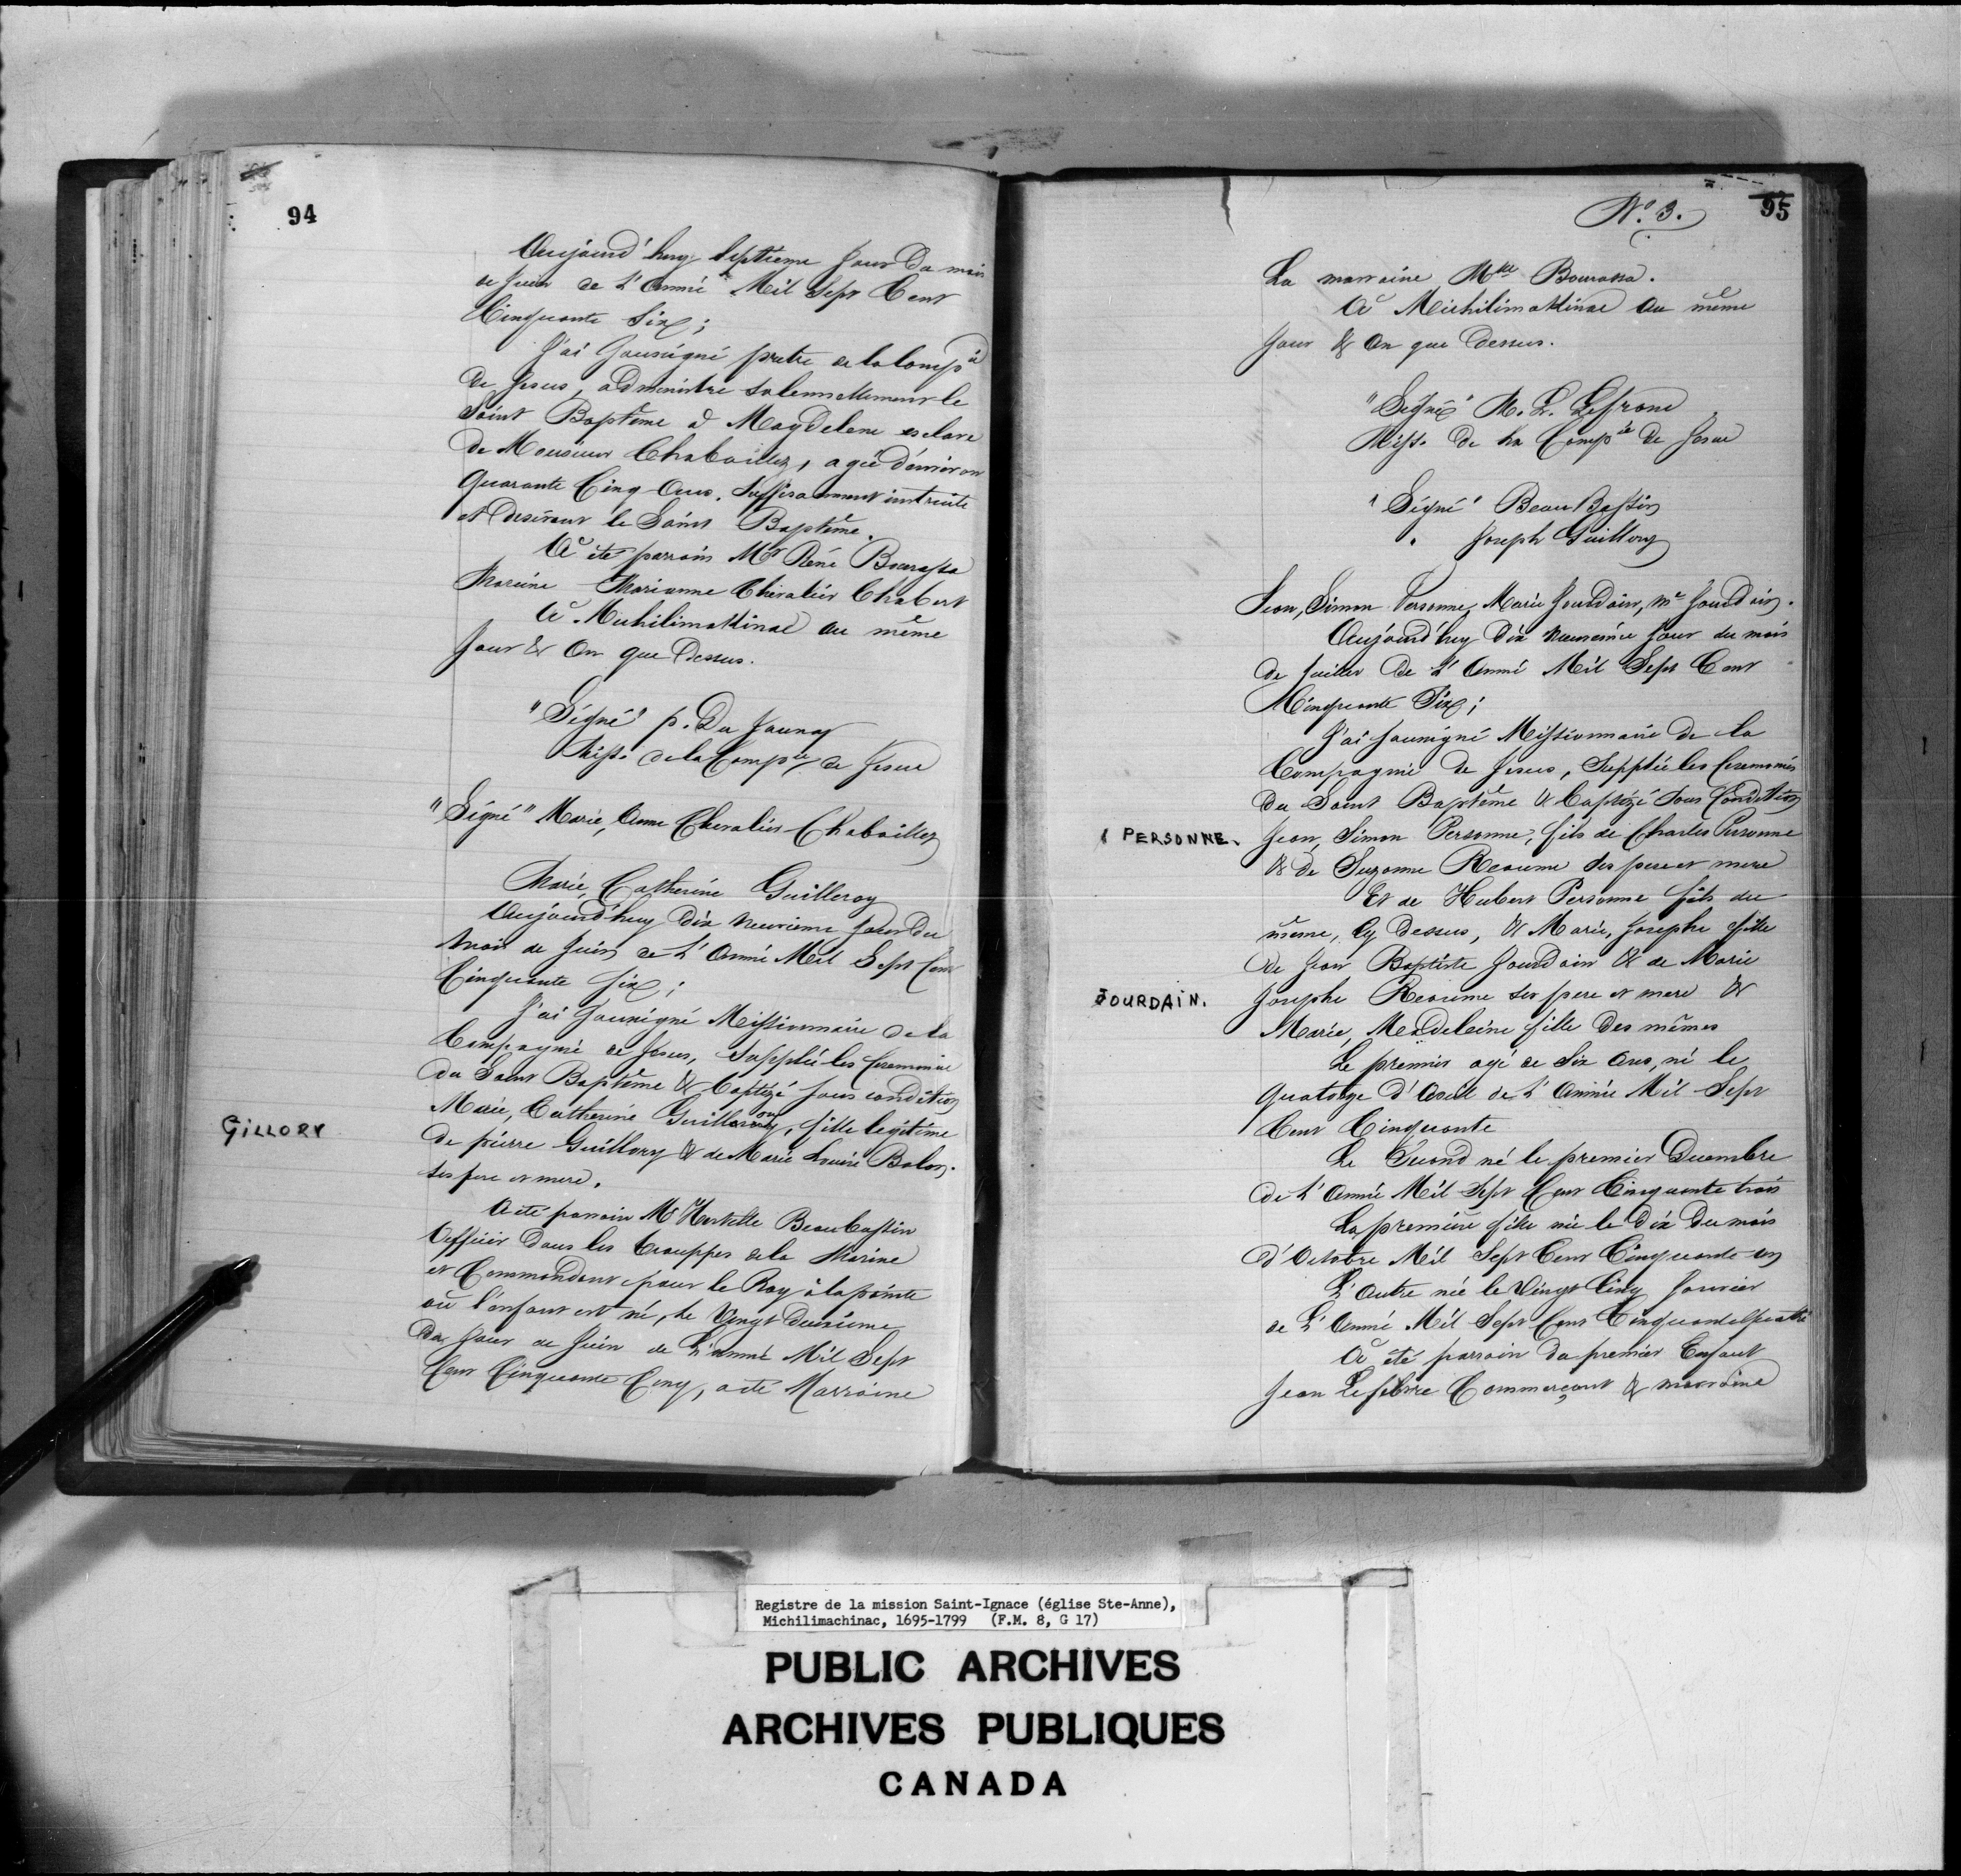 94
Aujourd'huy Septieme Jour Du mois
de Juin de L'Année Mil Sept Cent
Cinquante Six;
J'ai Sousigné pretre de la Compie
De Jesus, administre solennellement le
Saint Baptême à Magdelene esclave
De Monsieur Chaboillez, agée d'environ
Quarante Cinq Ans. Suffisamment instruite
et Desirant le Saint Baptême.
A été parrain Mr René Bourassa
Maraine Marianne Chevalier Chabert
A Michilimakinac au même
Jour & An que Dessus.
"Signé" p. Du Jaunay
Miss. de la Compie de Jesus
"Signé" Marie, Anne Chevalier Chaboillez
Marie, Catherine Guilleroy
Aujourd'huy Dix neuvieme Jour Du
Mois de Juin de L'Année Mil Sept Cent
Cinquante Six;
J'ai Sousigné Missionnaire de la
Compagnie de Jesus, Supplée les Ceremonies
Du Saint Baptême & baptizé sous condition
GILLORY
Marie, Catherine Guillory, fille legitime
De pierre Guillory & de Marie Louise Bolon.
ses pere et mere.
A été parrain Mr Hertelle Beaubassin
Officier Dans les trouppes de la Marine
et Commandant pour le Roy à la pointe
où l'enfant est né, le Vingt Deuxieme
Du Jour de Juin de L'année Mil Sept
Cent Cinquante Cinq, a été Marraine
No. 3.
95
La marraine Mlle Bourassa.
A Michilimakinac au même
Jour & An que Dessus.
"Signé" M. L. Lefranc
Miss. de la Compie De Jesus
"Signé" Beau Bassin
" Joseph Guillory
Jean, Simon Personne, Marie Jourdain, Me Jourdain.
Aujourd'huy Dix neuvieme Jour du mois
de Juillet de L'Année Mil Sept Cent
Cinquante Six;
J'ai sousigné Missionnaire De la
Compagnie de Jesus, Supplée les Ceremonies
Du Saint Baptême & baptizé sous Condition
PERSONNE.
Jean, Simon Personne, fils de Charles Personne
& de Suzanne Reaume ses pere et mere
Et de Hubert Personne fils du
même, Cy dessus, & Marie, Josephe fille
De Jean Baptiste Jourdain & de Marie
JOURDAIN.
Josephe Reaume ses pere et mere &
Marie, Madeleine fille Des mêmes
Le premier agé de Six Ans, né le
quatorze d'Avril de L'Année Mil Sept
Cent Cinquante
Le Second né le premier Decembre
de L'Année Mil Sept Cent Cinquante trois
La première fille née le Dix Du mois
d'Octobre Mil Sept Cent Cinquante un
L'Autre née le Vingt Cinq Janvier
de L'Année Mil Sept Cent Cinquante quatre
A été parrain du premier Enfant
Jean Lefebvre Commerçant & marraine
Registre de la mission Saint-Ignace (église Ste-Anne),
Michilimachinac, 1695-1799 (F.M. 8, G 17)
PUBLIC ARCHIVES
ARCHIVES PUBLIQUES
CANADA